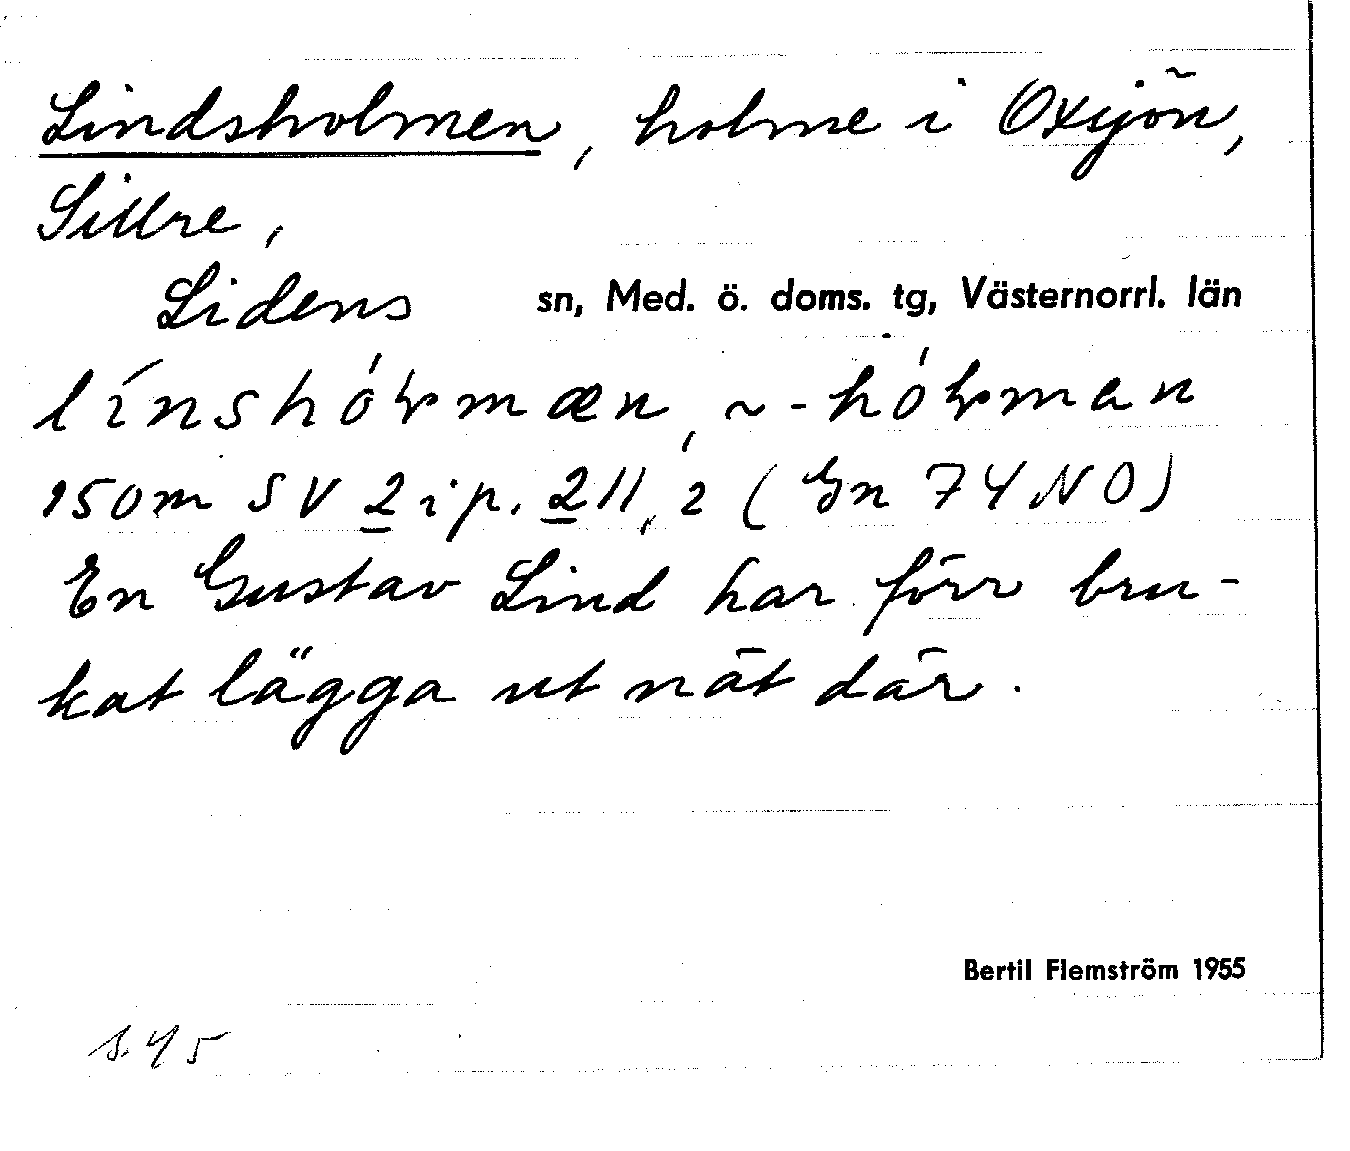 Lindsholmen, holme i Oxsjön,
Sillre,
Lidens sn, Med. ö. doms. tg, Västernorrl. län
línshóḷmæn, ~ -hóḷman
150m SV 2 i p. 211,2 (Gn 74NO)
En Gustav Lind har förr bru-
kat lägga ut nät där.
Bertil Flemström 1955
s. 45